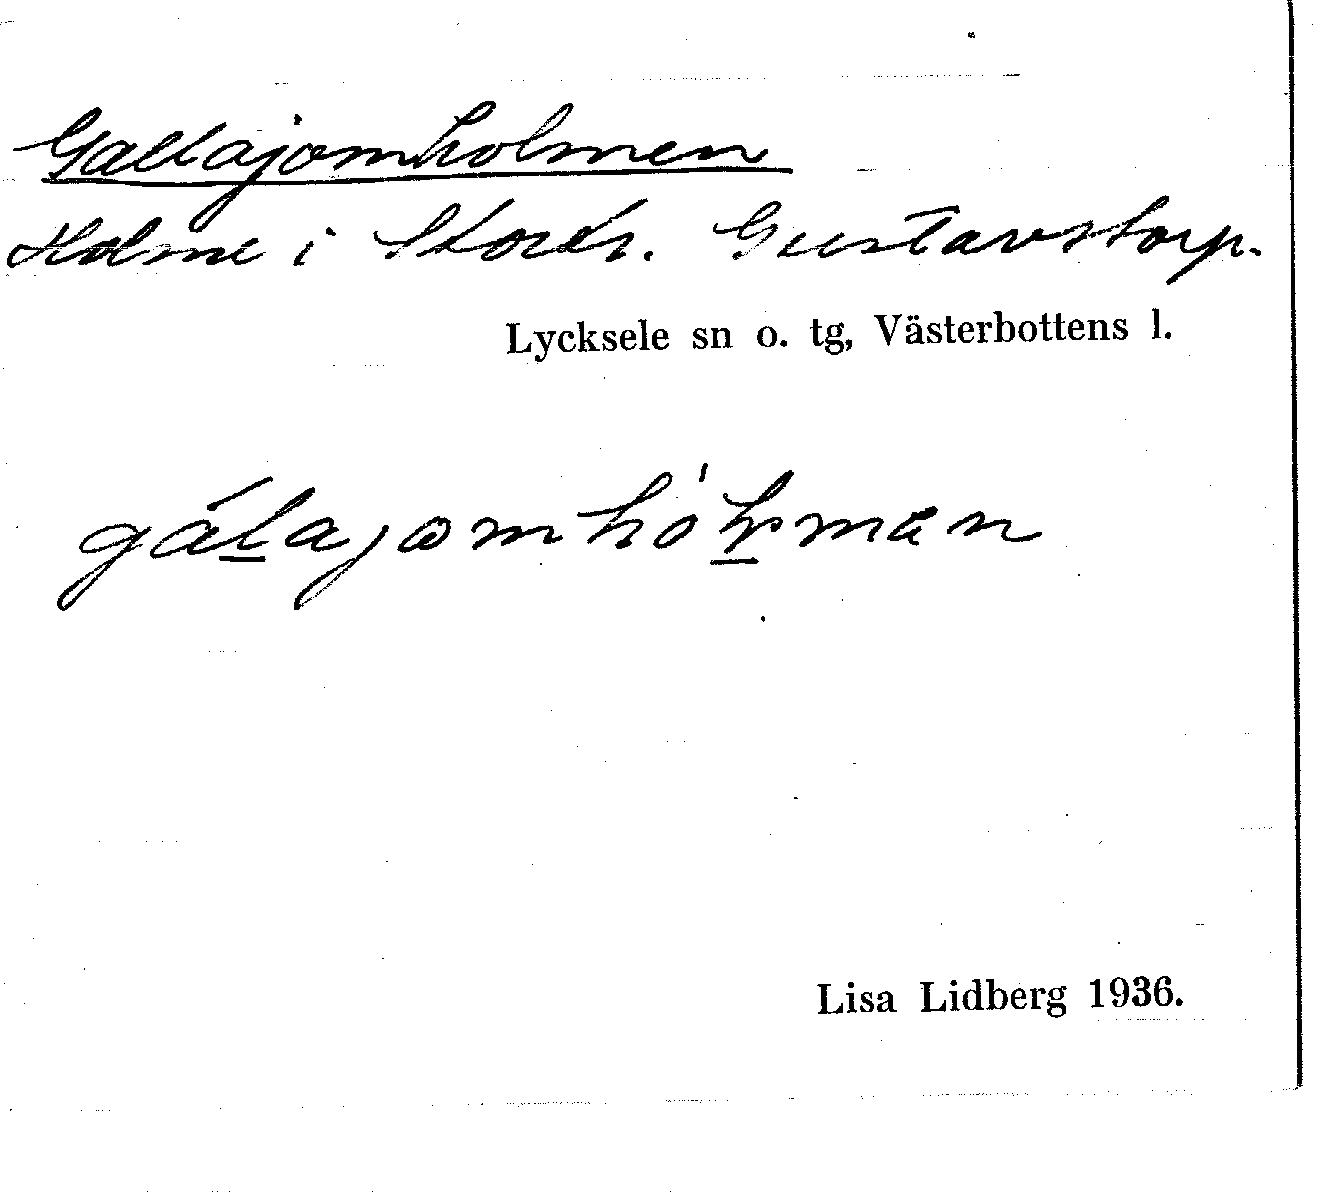 Gallajomholmen
Holme i Storån. Gustavstorp.
Lycksele sn o. tg, Västerbottens l.
Lisa Lidberg 1936.